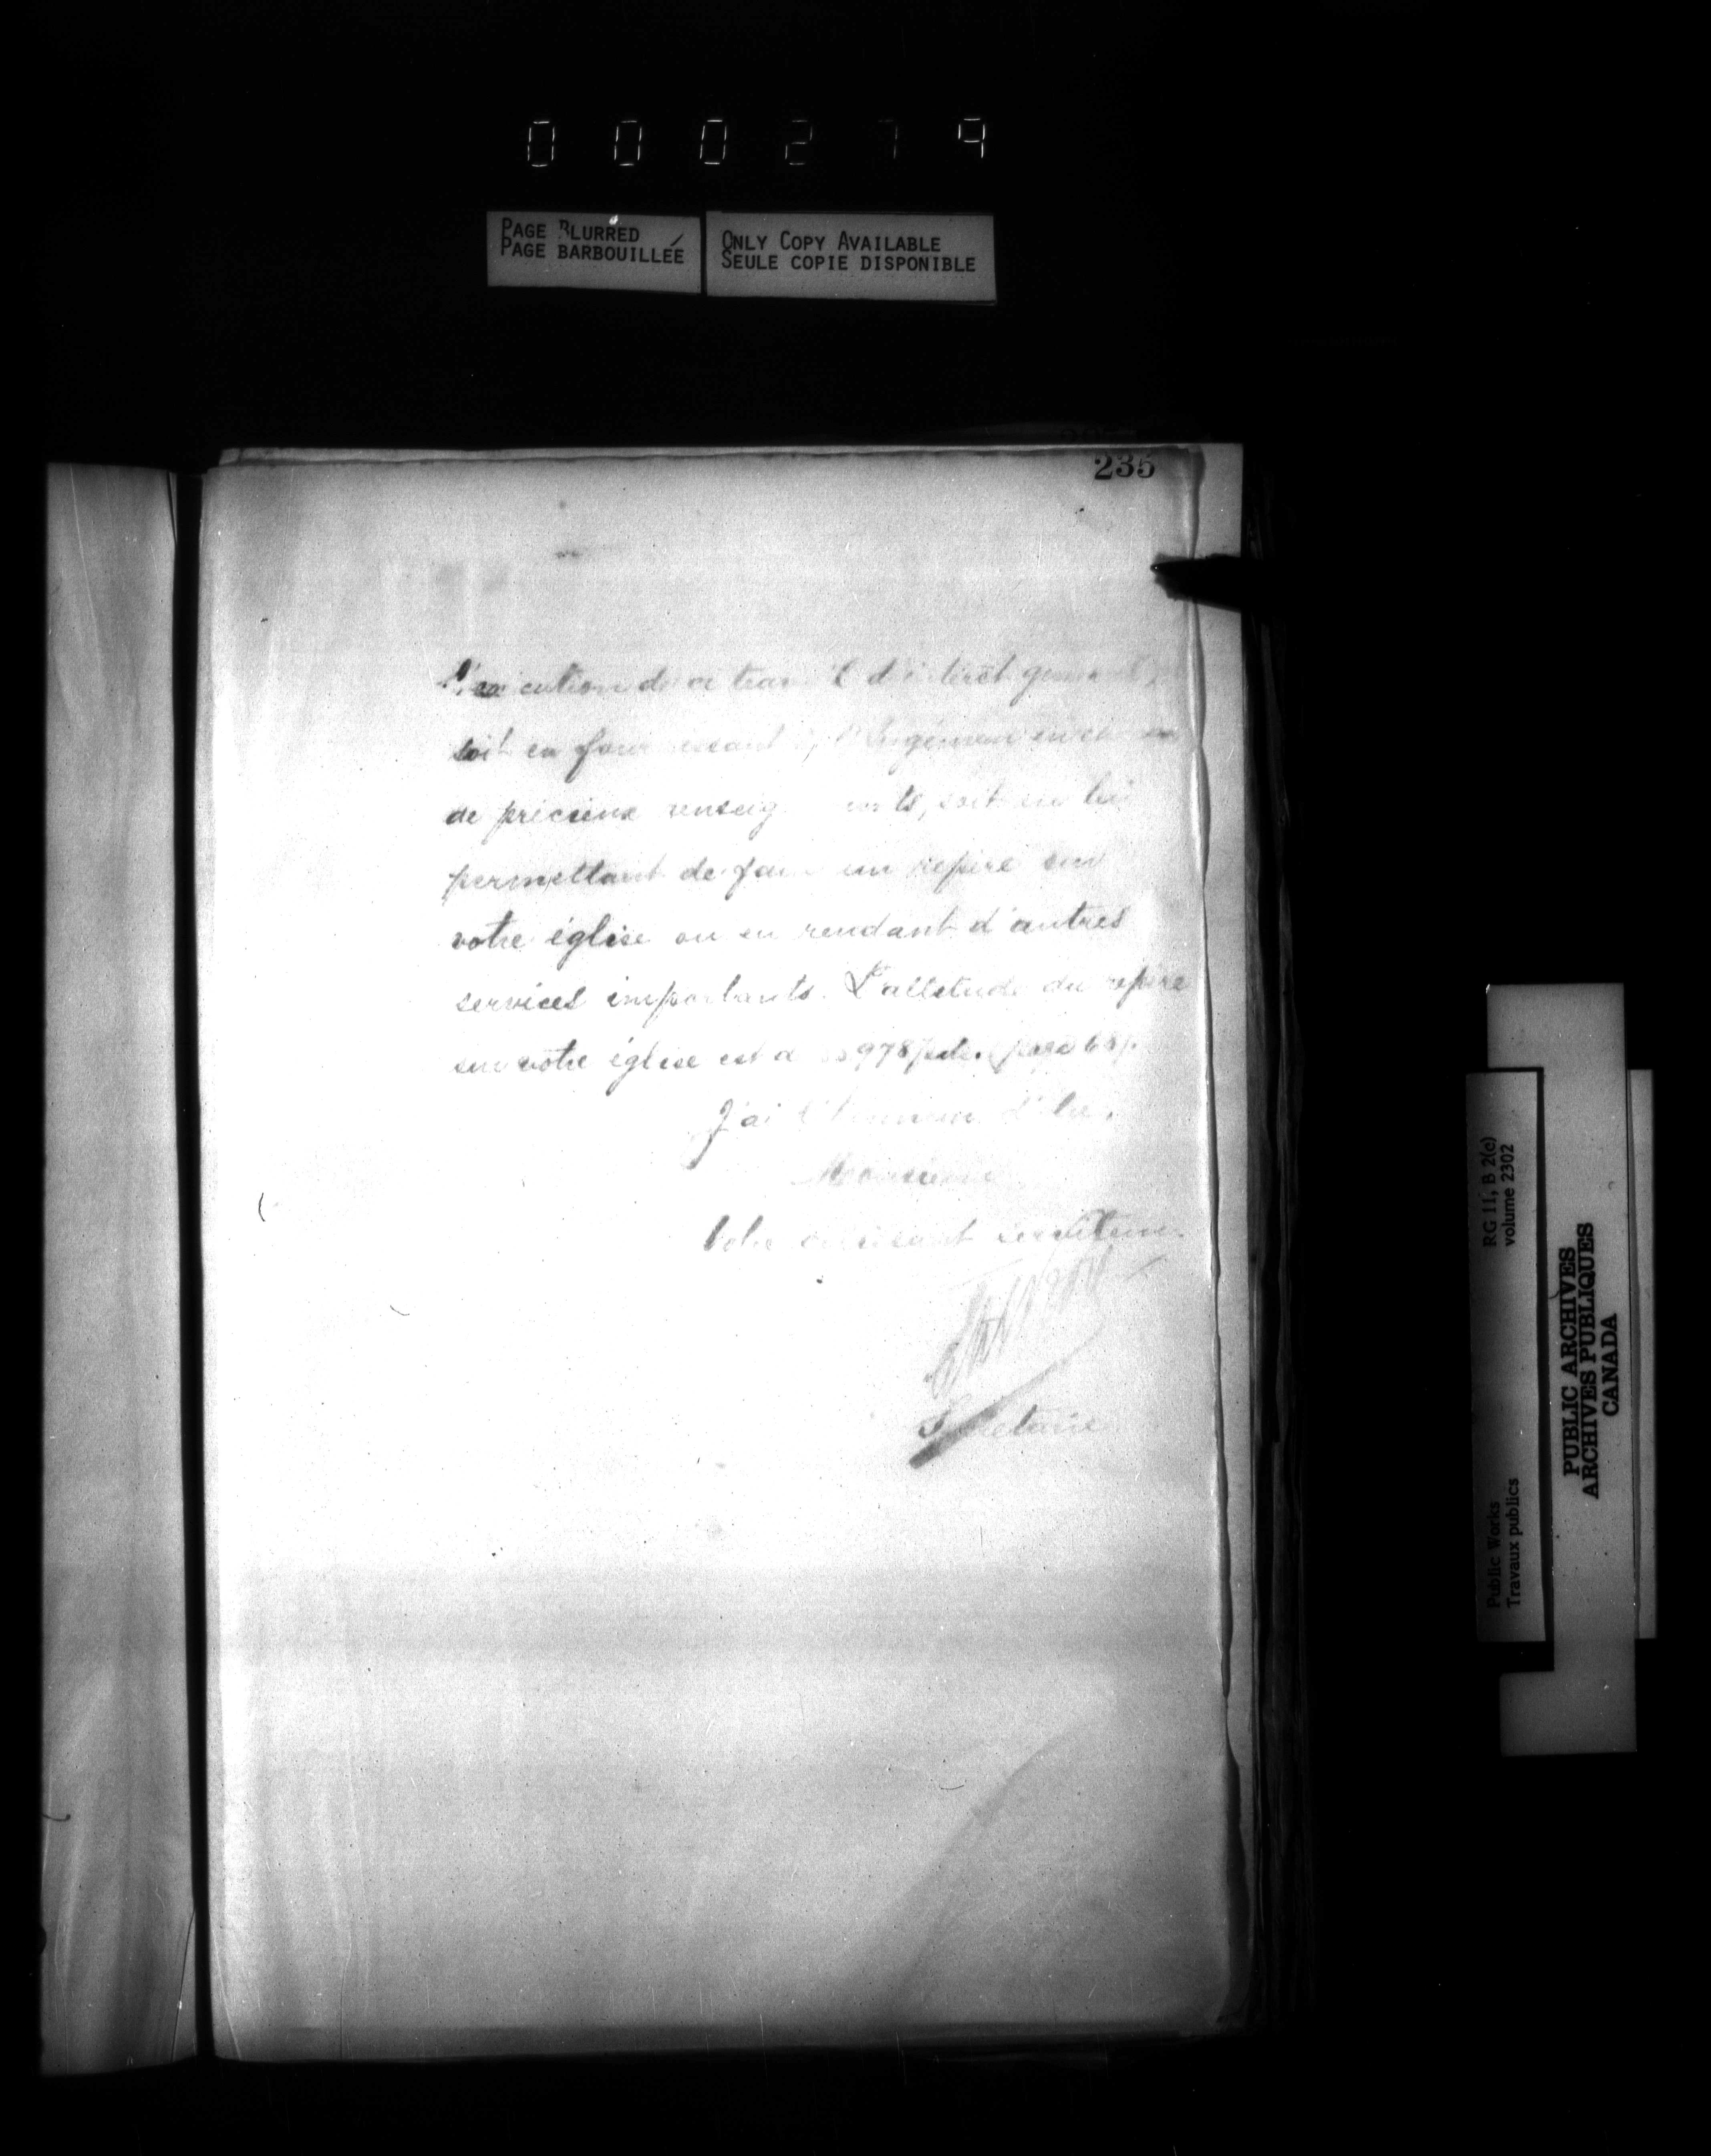 000279
PAGE BLURRED
PAGE BARBOUILLÉE
ONLY COPY AVAILABLE
SEULE COPIE DISPONIBLE
235
l'exécution de ce travail d'intérêt général
soit en fournissant à l'Ingénieur
de précieux renseignements, soit en lui
permettant de faire un repère sur
votre église ou en rendant d'autres
services importants. L'altitude du repère
sur votre église est de 978
J'ai l'honneur d'être,
Monsieur
Votre obéissant serviteur.
Secrétaire
RG 11, B 2(c)
volume 2302
Public Works
Travaux publics
PUBLIC ARCHIVES
ARCHIVES PUBLIQUES
CANADA